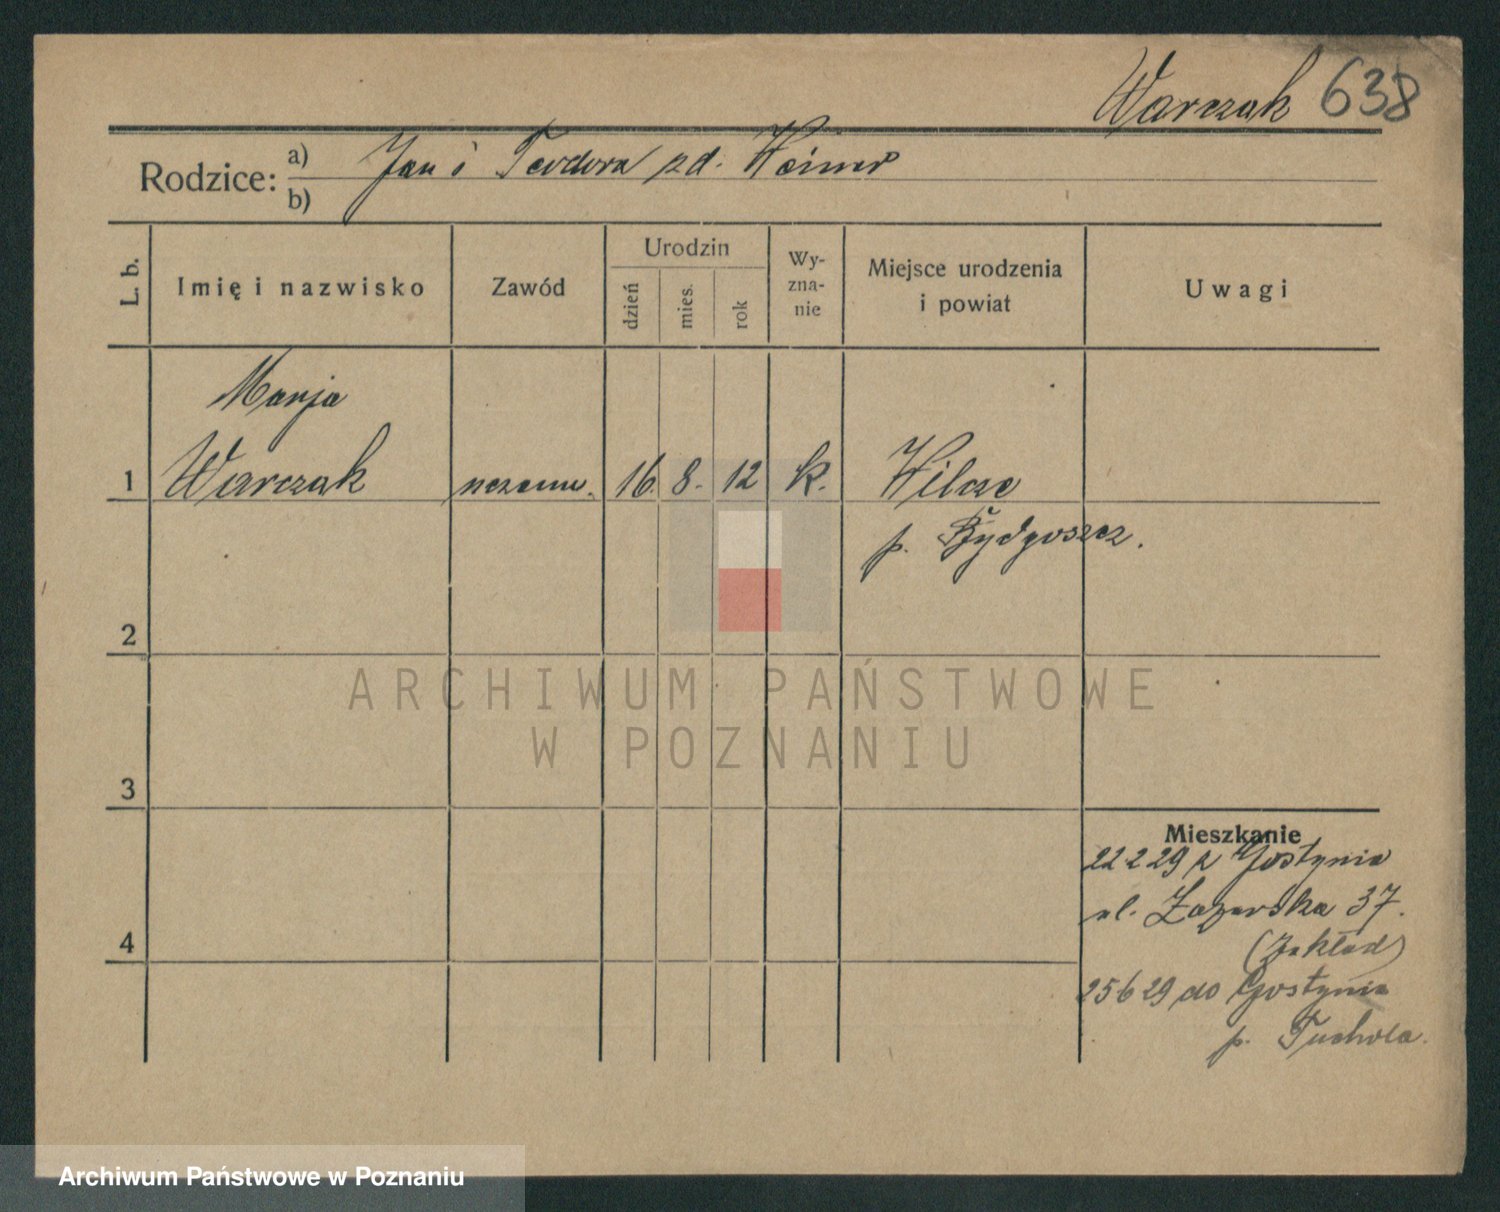 Warczak 638
Rodzice: a) Jan i Teodora zd.
b)
L. b.
Imię i nazwisko
Zawód
Urodzin
dzień
mies.
rok
Wy-
zna-
nie
Miejsce urodzenia
i powiat
Uwagi
Marja
1 Warczak 16. 8. 12 k.
p. Bydgoszcz.
2
3
4
Mieszkanie
22 2 29 z Gostynia
ul. Łazarska 37.
(Zakład)
25 6 29 do Gostynia
p. Tuchola.
ARCHIWUM PAŃSTWOWE
W POZNANIU
Archiwum Państwowe w Poznaniu